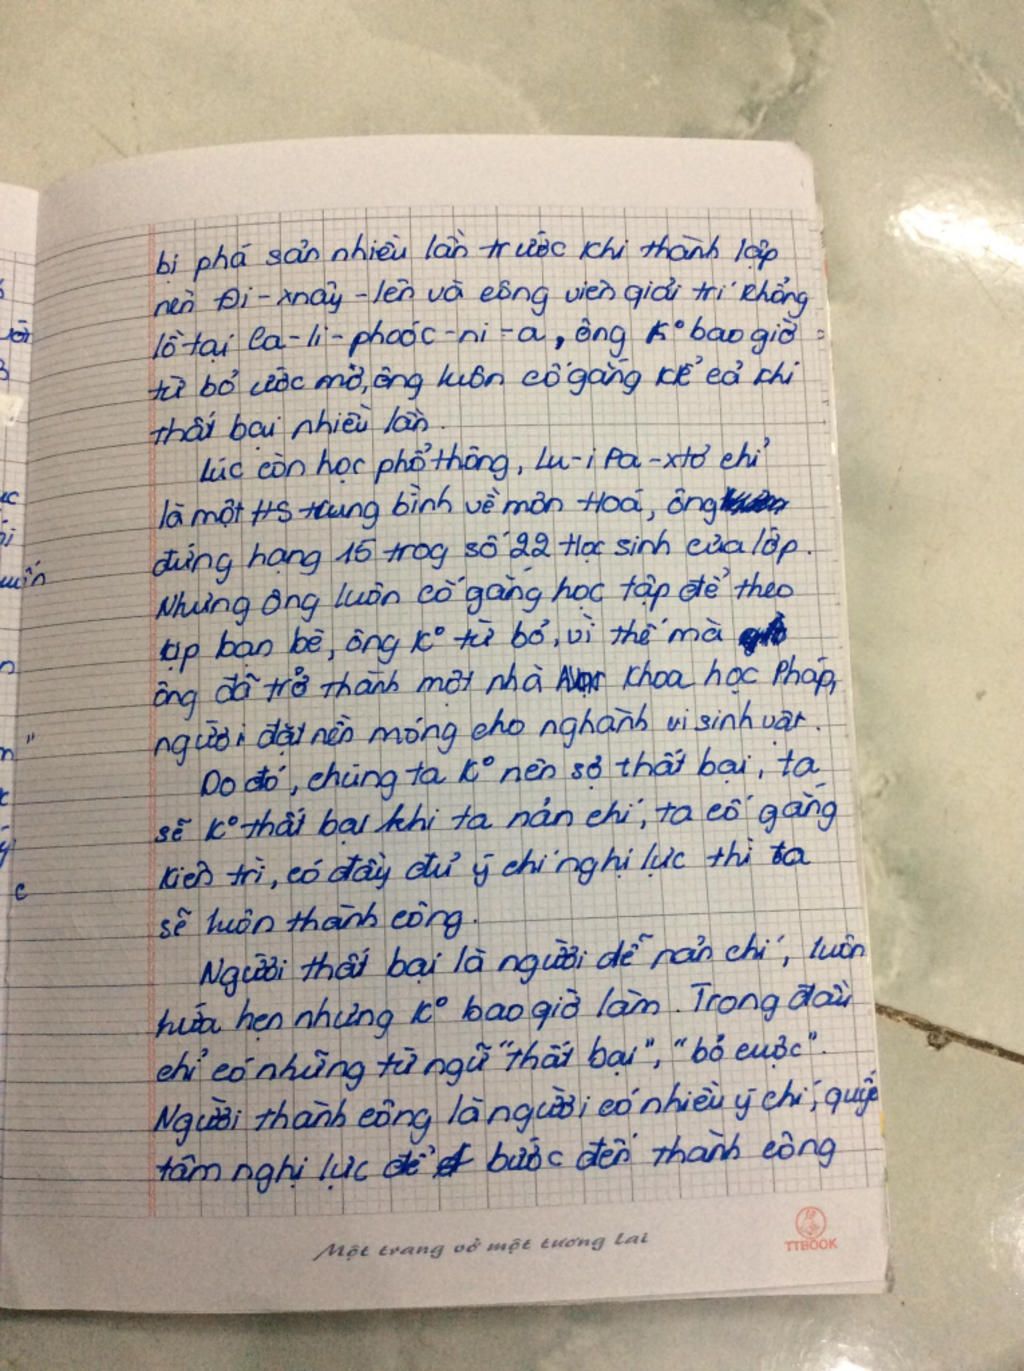 bị phá sản nhiều lần trước khi thành lập
nên Đi-xnây-len và công viên giải trí khổng
lồ tại Ca-li-phoóc-ni-a, ông Kº bao giờ
từ bỏ ước mơ, ông luôn cố gắng kể cả khi
thất bại nhiều lần.
Lúc còn học phổ thông, Lu-i Pa-xtơ chỉ
là một HS trung bình về môn Hoá, ông
đứng hạng 15 trog số 22 Học sinh của lớp.
Nhưng ông luôn cố gắng học tập để theo
kịp bạn bè, ông Kº từ bỏ, vì thế mà
ông đã trở thành một nhà khoa học Pháp,
người đặt nền móng cho nghành vi sinh vật.
Do đó, chúng ta Kº nên sợ thất bại, ta
sẽ Kº thất bại khi ta nản chí, ta cố gắng
kiên trì, có đầy đủ ý chí nghị lực thì ta
sẽ luôn thành công.
Người thất bại là người dễ nản chí, luôn
hứa hẹn nhưng Kº bao giờ làm. Trong đầu
chỉ có những từ ngữ "thất bại", "bỏ cuộc".
Người thành công là người có nhiều ý chí, quyế
tâm nghị lực để bước đến thành công
Một trang vở một tương lai
TTBOOK